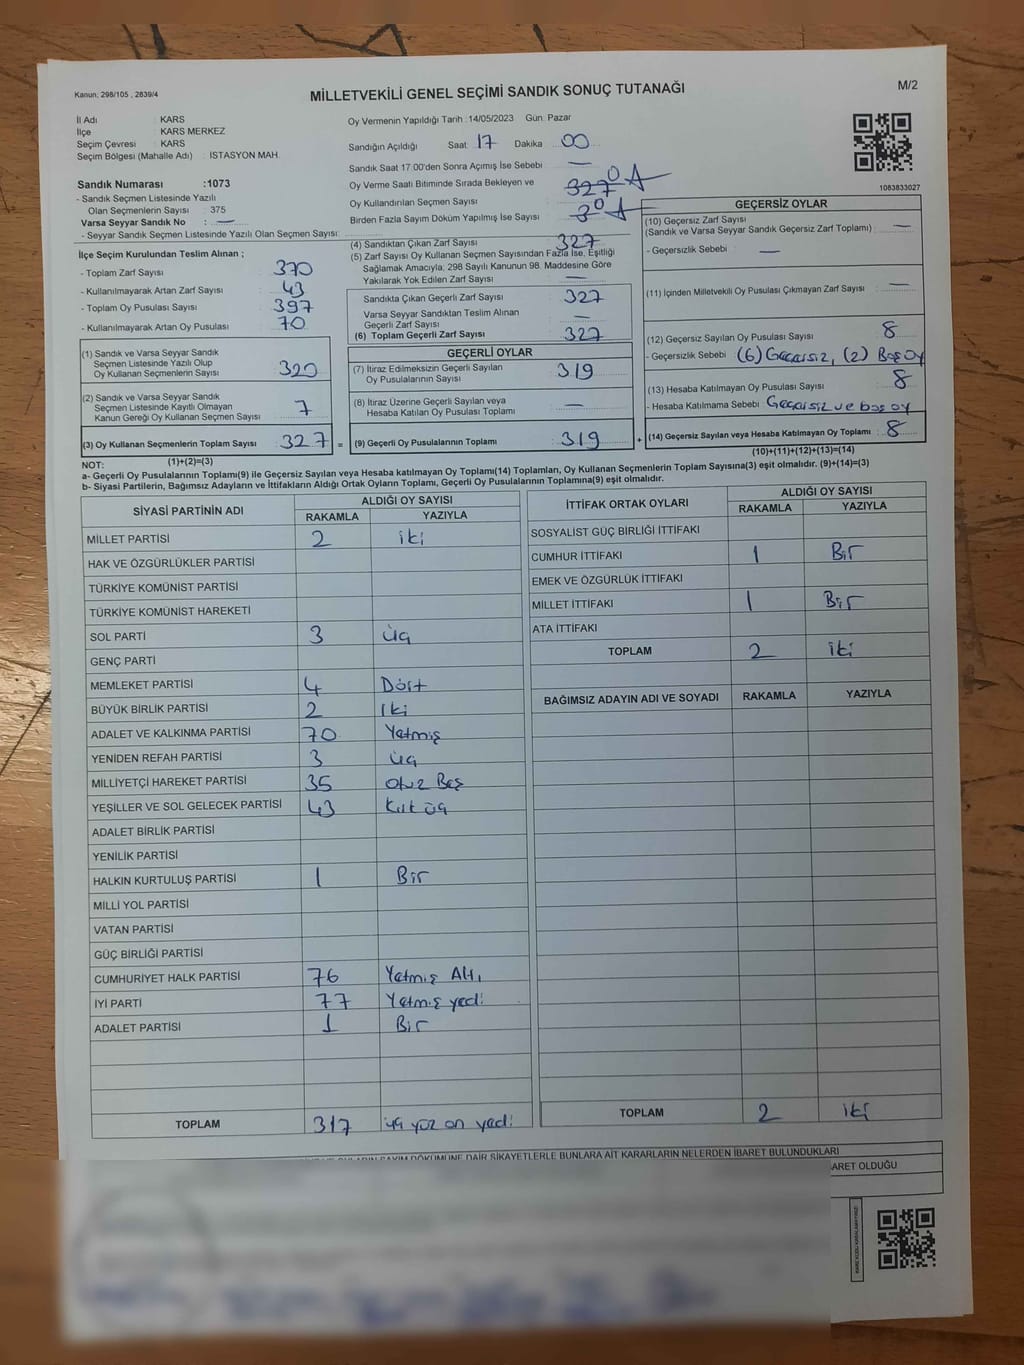 Kanun; 298/105 , 2839/4
MİLLETVEKİLİ GENEL SEÇİMİ SANDIK SONUÇ TUTANAĞI
M/2
İl Adı : KARS
İlçe : KARS MERKEZ
Seçim Çevresi : KARS
Seçim Bölgesi (Mahalle Adı) : İSTASYON MAH.
Sandık Numarası :1073
- Sandık Seçmen Listesinde Yazılı
Olan Seçmenlerin Sayısı : 375
Varsa Seyyar Sandık No : —
- Seyyar Sandık Seçmen Listesinde Yazılı Olan Seçmen Sayısı:
Oy Vermenin Yapıldığı Tarih : 14/05/2023 Gün: Pazar
Sandığın Açıldığı Saat 17 Dakika 00
Sandık Saat 17.00'den Sonra Açımış İse Sebebi —
Oy Verme Saati Bitiminde Sırada Bekleyen ve
Oy Kullandırılan Seçmen Sayısı 327 0
Birden Fazla Sayım Döküm Yapılmış İse Sayısı 3 0
1083833027
İlçe Seçim Kurulundan Teslim Alınan ;
- Toplam Zarf Sayısı : 370
- Kullanılmayarak Artan Zarf Sayısı : 43
- Toplam Oy Pusulası Sayısı : 397
- Kullanılmayarak Artan Oy Pusulası : 70
(1) Sandık ve Varsa Seyyar Sandık
Seçmen Listesinde Yazılı Olup
Oy Kullanan Seçmenlerin Sayısı : 320
(2) Sandık ve Varsa Seyyar Sandık
Seçmen Listesinde Kayıtlı Olmayan
Kanun Gereği Oy Kullanan Seçmen Sayısı : 7
(3) Oy Kullanan Seçmenlerin Toplam Sayısı : 327 =
(1)+(2)=(3)
(4) Sandıktan Çıkan Zarf Sayısı : 327
(5) Zarf Sayısı Oy Kullanan Seçmen Sayısından Fazla İse, Eşitliği
Sağlamak Amacıyla; 298 Sayılı Kanunun 98. Maddesine Göre
Yakılarak Yok Edilen Zarf Sayısı : —
Sandıkta Çıkan Geçerli Zarf Sayısı : 327
Varsa Seyyar Sandıktan Teslim Alınan
Geçerli Zarf Sayısı : —
(6) Toplam Geçerli Zarf Sayısı : 327
GEÇERLİ OYLAR
(7) İtiraz Edilmeksizin Geçerli Sayılan
Oy Pusulalarının Sayısı : 319
(8) İtiraz Üzerine Geçerli Sayılan veya
Hesaba Katılan Oy Pusulası Toplamı : —
(9) Geçerli Oy Pusulalarının Toplamı : 319 +
GEÇERSİZ OYLAR
(10) Geçersiz Zarf Sayısı
(Sandık ve Varsa Seyyar Sandık Geçersiz Zarf Toplamı) : —
- Geçersizlik Sebebi : —
(11) İçinden Milletvekili Oy Pusulası Çıkmayan Zarf Sayısı : —
(12) Geçersiz Sayılan Oy Pusulası Sayısı : 8
- Geçersizlik Sebebi : (6) Geçersiz, (2) Boş Oy
(13) Hesaba Katılmayan Oy Pusulası Sayısı : 8
- Hesaba Katılmama Sebebi : Geçersiz ve boş oy
(14) Geçersiz Sayılan veya Hesaba Katılmayan Oy Toplamı : 8
(10)+(11)+(12)+(13)=(14)
NOT:
a- Geçerli Oy Pusulalarının Toplamı(9) ile Geçersiz Sayılan veya Hesaba katılmayan Oy Toplamı(14) Toplamları, Oy Kullanan Seçmenlerin Toplam Sayısına(3) eşit olmalıdır. (9)+(14)=(3)
b- Siyasi Partilerin, Bağımsız Adayların ve İttifakların Aldığı Ortak Oyların Toplamı, Geçerli Oy Pusulalarının Toplamına(9) eşit olmalıdır.
SİYASİ PARTİNİN ADI ALDIĞI OY SAYISI
RAKAMLA YAZIYLA
MİLLET PARTİSİ 2 iki
HAK VE ÖZGÜRLÜKLER PARTİSİ
TÜRKİYE KOMÜNİST PARTİSİ
TÜRKİYE KOMÜNİST HAREKETİ
SOL PARTİ 3 üç
GENÇ PARTİ
MEMLEKET PARTİSİ 4 Dört
BÜYÜK BİRLİK PARTİSİ 2 Iki
ADALET VE KALKINMA PARTİSİ 70 Yetmiş
YENİDEN REFAH PARTİSİ 3 üç
MİLLİYETÇİ HAREKET PARTİSİ 35 otuz Beş
YEŞİLLER VE SOL GELECEK PARTİSİ 43 Kırk üç
ADALET BİRLİK PARTİSİ
YENİLİK PARTİSİ
HALKIN KURTULUŞ PARTİSİ 1 Bir
MİLLİ YOL PARTİSİ
VATAN PARTİSİ
GÜÇ BİRLİĞİ PARTİSİ
CUMHURİYET HALK PARTİSİ 76 Yetmiş Altı
İYİ PARTİ 77 Yetmiş yedi
ADALET PARTİSİ 1 Bir
TOPLAM 317 üç yüz on yedi
İTTİFAK ORTAK OYLARI ALDIĞI OY SAYISI
RAKAMLA YAZIYLA
SOSYALİST GÜÇ BİRLİĞİ İTTİFAKI
CUMHUR İTTİFAKI 1 Bir
EMEK VE ÖZGÜRLÜK İTTİFAKI
MİLLET İTTİFAKI 1 Bir
ATA İTTİFAKI
TOPLAM 2 iki
BAĞIMSIZ ADAYIN ADI VE SOYADI RAKAMLA YAZIYLA
TOPLAM 2 iki
SAYIM DÖKÜMÜNE DAİR ŞİKAYETLERLE BUNLARA AİT KARARLARIN NELERDEN İBARET BULUNDUKLARI
BARET OLDUĞU